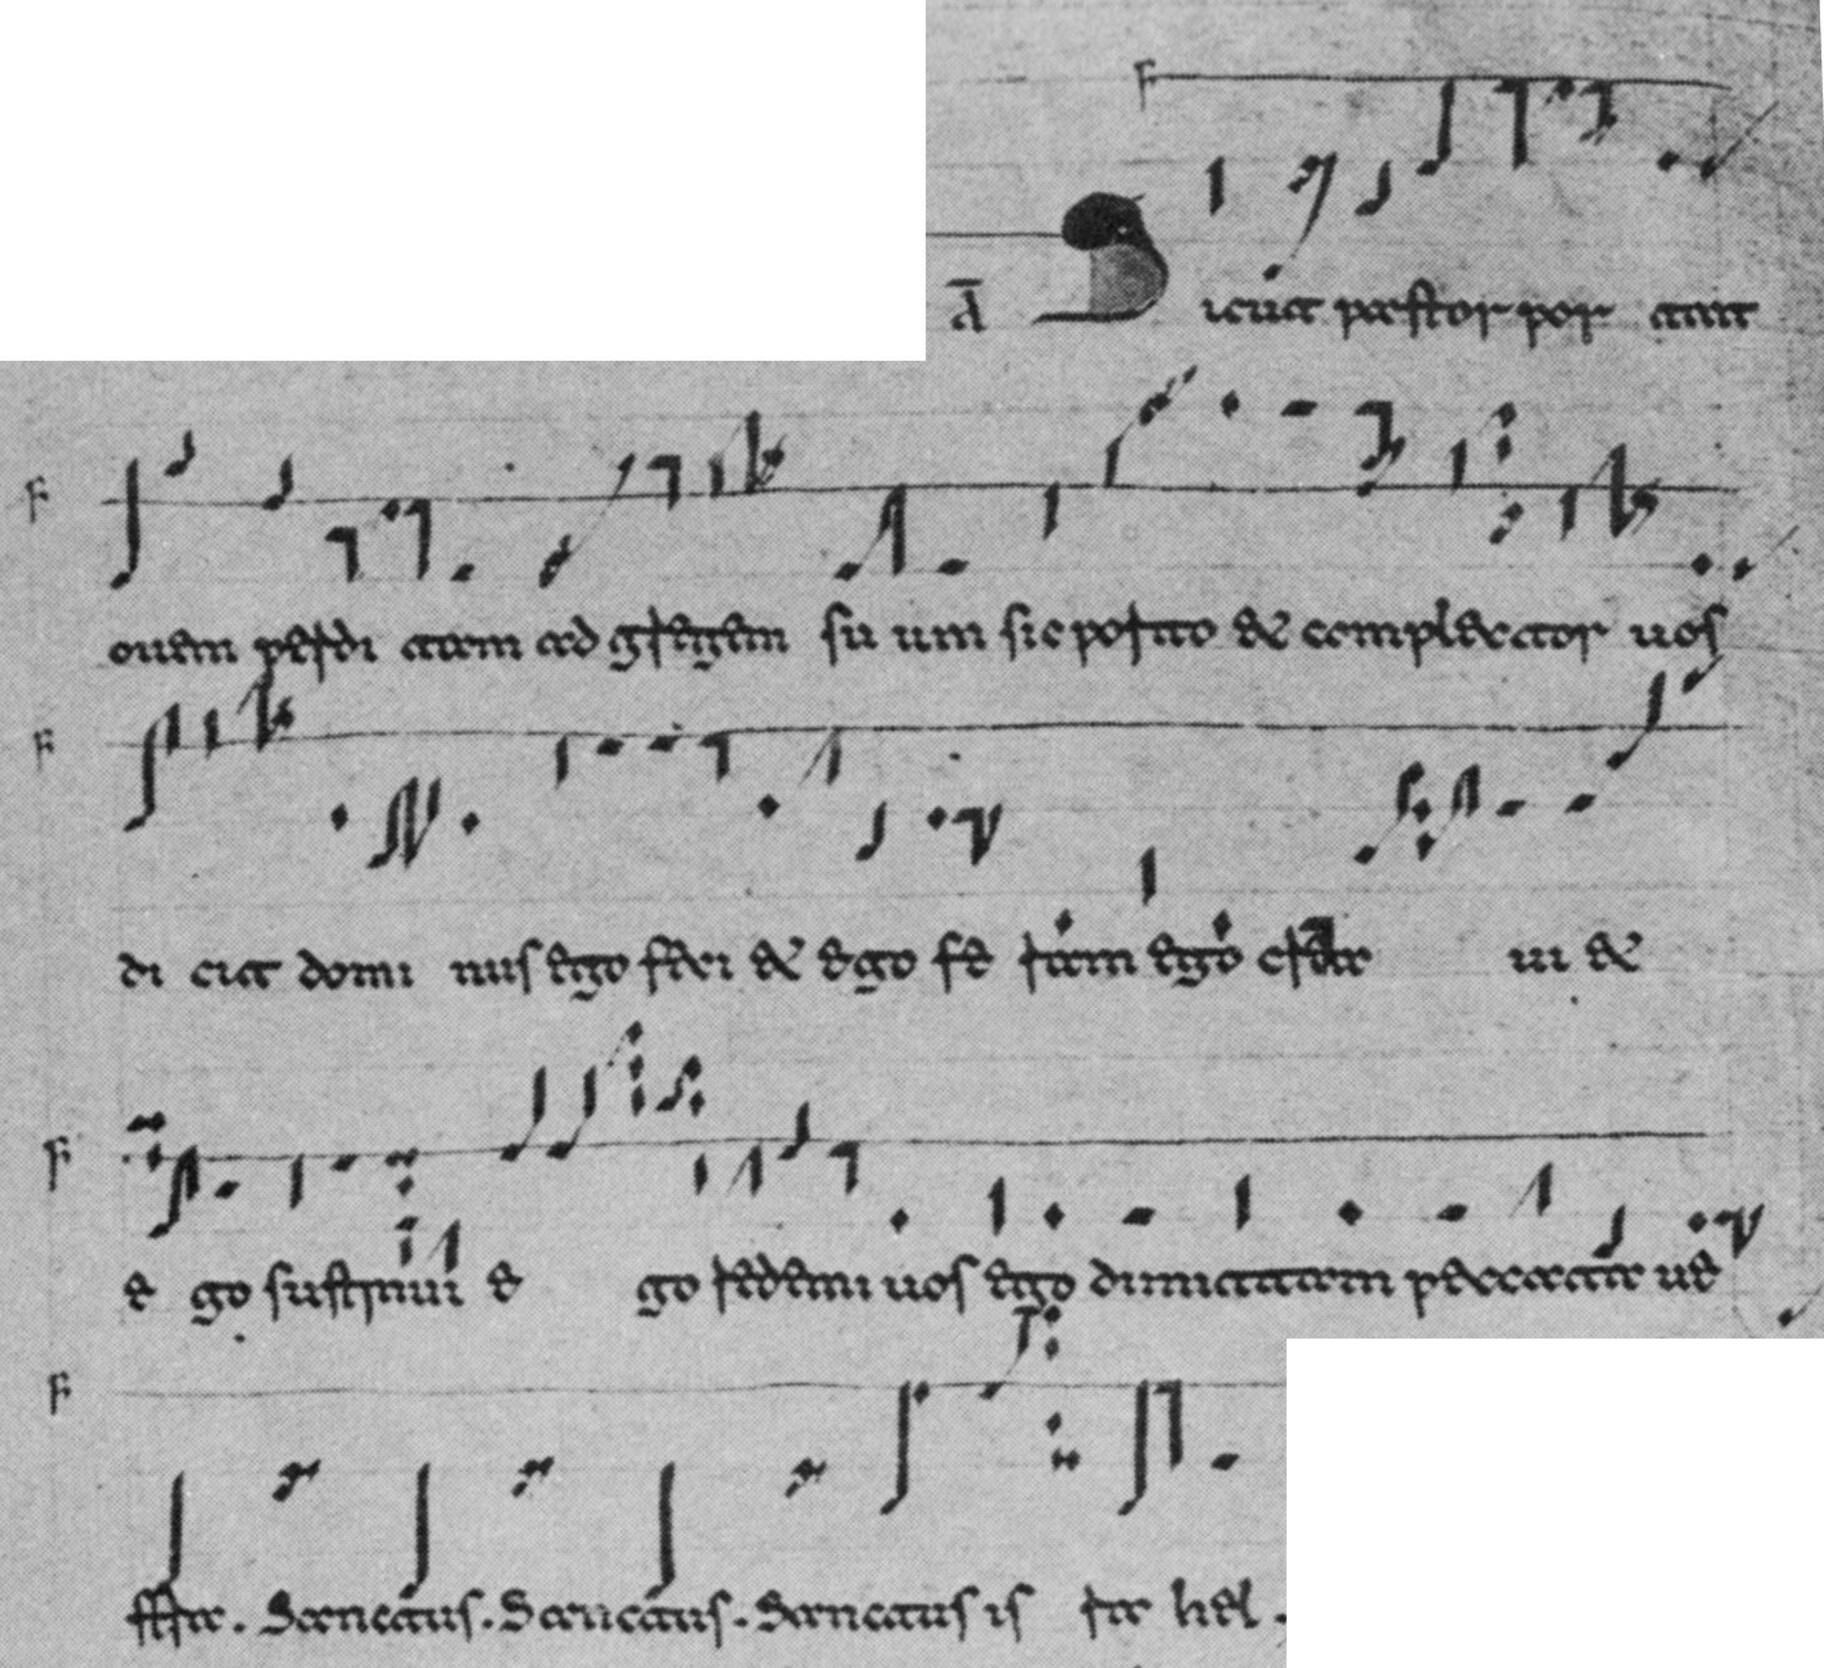 F
Ā Sicut pastor por tat
F
ouem perdi tam ad gregem su um sic porto & complector uos
F
di cit domi nus ego feci & ego fe ram ego crea ui &
F
e go sustinui e go redemi uos ego dimittam peccata ue
F
stra. Sanctus. Sanctus. Sanctus is ra hel.